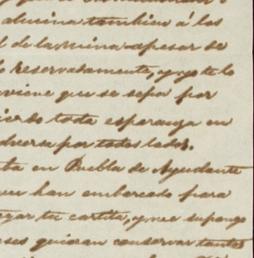 alucina tambien á los
l de la mina apesar de
reservadamente, y yo te lo
viene que se sepa por
ierdo toda esperanza en
adversa por todos lados.
ba en Puebla de Ayudante
han embarcado para
gar tu cartita, y me supongo
ses quieran conservar tantos